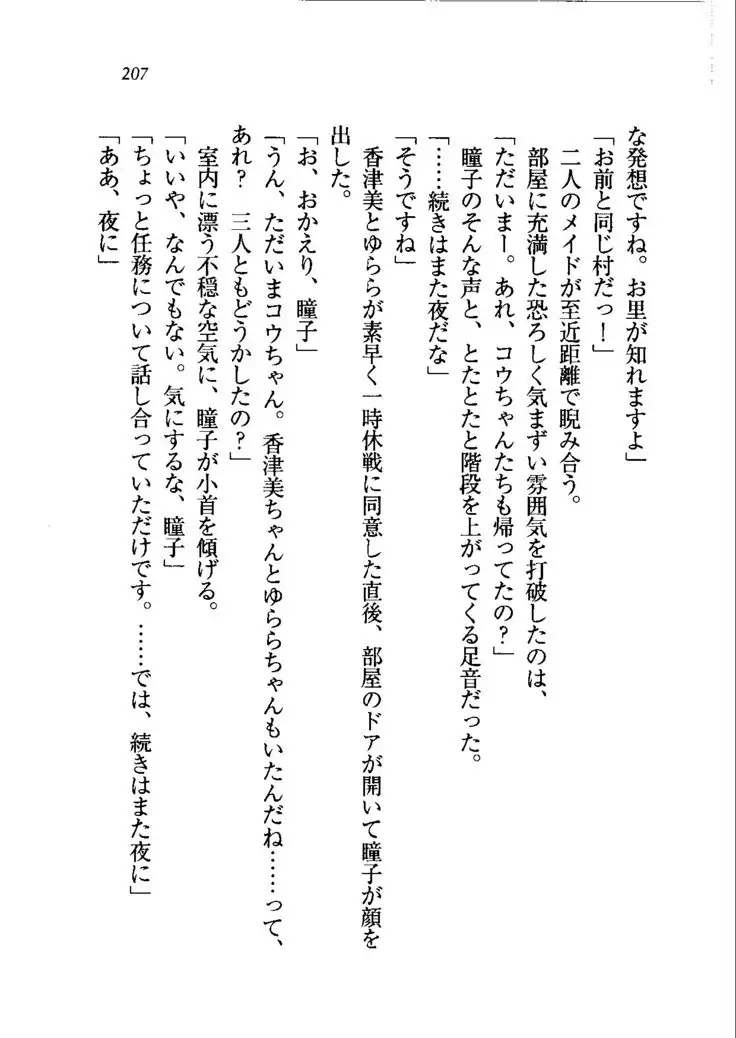 207
な発想ですね。お里が知れますよ」
「お前と同じ村だっ！」
二人のメイドが至近距離で睨み合う。
部屋に充満した恐ろしく気まずい雰囲気を打破したのは、
「ただいまー。あれ、コウちゃんたちも帰ってたの？」
瞳子のそんな声と、とたとたと階段を上がってくる足音だった。
「……続きはまた夜だな」
「そうですね」
香津美とゆららが素早く一時休戦に同意した直後、部屋のドアが開いて瞳子が顔を
出した。
「お、おかえり、瞳子」
「うん、ただいまコウちゃん。香津美ちゃんとゆららちゃんもいたんだね……って、
あれ？　三人ともどうかしたの？」
室内に漂う不穏な空気に、瞳子が小首を傾げる。
「いいや、なんでもない。気にするな、瞳子」
「ちょっと任務について話し合っていただけです。……では、続きはまた夜に」
「ああ、夜に」